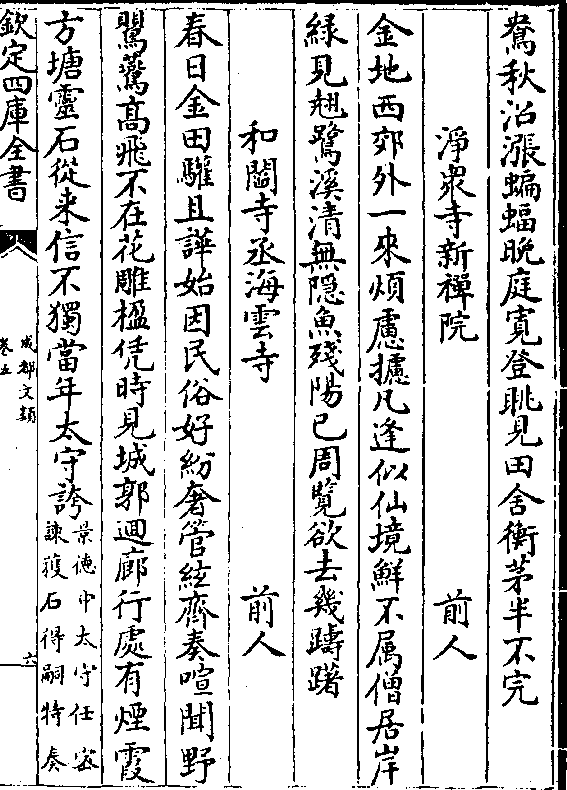 鴦秋沼漲蝙蝠晚庭寛登眺見田舍衡茅半不完
淨衆寺新禪院 前人
金地西郊外一來煩慮攄凡逢似仙境鮮不属僧居岸
緑見翹鷺溪清無隠魚殘陽已周覽欲去幾躊躇
和闔寺丞海雲寺 前人
春日金田驩且譁始因民俗好紛奢管絃齊奏喧聞野
鴛鷟髙飛不在花雕楹凭時見城郭迴廊行處有煙霞
方塘靈石從来信不獨當年太守誇景德中太守任宻
諌獲石得嗣特奏
欽定四庫全書
成都文類
卷五
六